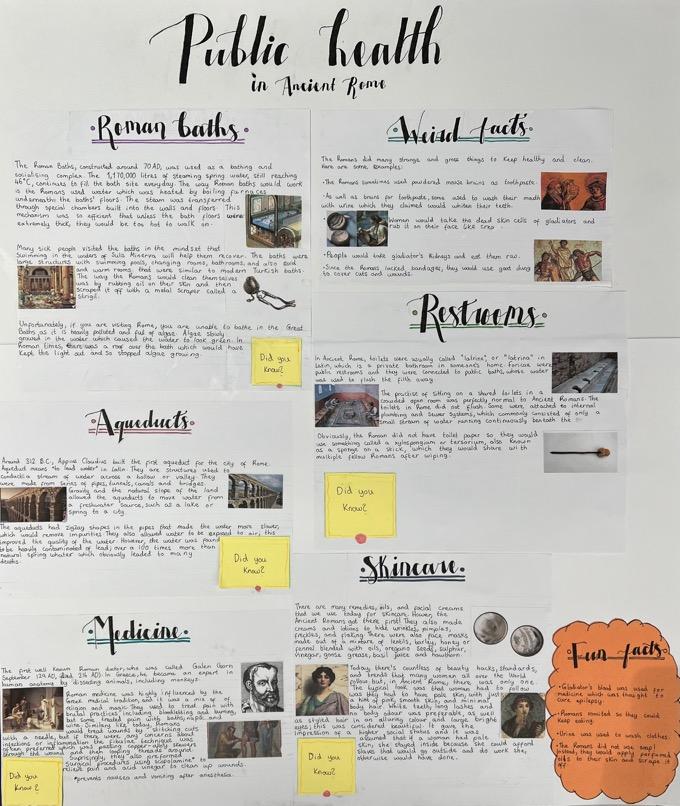 Public health
in Ancient Rome
Roman baths
The Roman Baths, constructed around 70 AD, was used as a bathing and
socialising complex. The 1,170,000 litres of steaming spring water, still reaching
46°C, continues to fill the bath site everyday. The way Roman baths would work
is the Romans used water which was heated by boiling furnaces
underneath the baths' floors. The steam was transferred
through special chambers built into the walls and floors. This
mechanism was so efficient that unless the bath floors were
extremely thick, they would be too hot to walk on.
Many sick people visited the baths in the mindset that
Swimming in the waters of Sulis Minerva will help them recover. The baths were
large structures with swimming pools, changing rooms, bathrooms, and also
and warm rooms that were similar to modern Turkish baths.
The way the Romans would clean themselves
was by rubbing oil on their skin and then
scraped it off with a metal scraper called a
strigil.
Unfortunately, if you are visiting Rome, you are unable to bathe in the Great
Baths as it is heavily polluted and full of algae. Algae slowly
growed in the water which caused the water to look green. In
Roman times, there was a roof over the bath which would have
Kept the light out and so stopped algae growing.
Did you
Know?
Weird facts
The Romans did many strange and gross things to Keep healthy and clean.
Here are some examples:
•The Romans sometimes used powdered mouse brains as toothpaste.
•As well as brains for toothpaste, some used to wash their mouth
with urine which they claimed would whiten their teeth.
Woman would take the dead skin cells of gladiators and
rub it on their face like
•People would take gladiator's Kidneys and eat them raw.
•Since the Romans lacked bandages, they would use goat dung
to cover cuts and wounds.
Restrooms
In Ancient Rome, toilets were usually called "latrine", or "latrina" in
Latin, which is a private bathroom in someone's home. Foricae were
public restrooms and they were connected to public baths, whose water
was used to flush the filth away.
The practise of sitting on a shared toilets in a
crowded open room was perfectly normal to Ancient Romans. The
toilets in Rome did not flush. Some were attached to internal
plumbing and sewer systems, which commonly consisted of only a
small stream of water running continuously beneath the
Obviously, the Roman did not have toilet paper so they would
use something called a xylospongium or tersorium, also known
as a sponge on a stick, which they would share with
multiple fellow Romans after wiping.
Did you
Know?
Aqueducts
Around 312 B.C., Appius Claudius built the first aqueduct for the city of Rome.
Aqueduct means "to lead water" in Latin. They are structures used to
conduct a stream of water across a hollow or valley. They
were made from series of pipes, tunnels, canals and bridges.
Gravity and the natural slope of the land
allowed the aqueducts to move water from
a freshwater source, such as a lake or
spring to a city.
The aqueducts had zigzag shapes in the pipes that made the water more slower,
which would remove impurities. They also allowed water to be exposed to air, this
improved the quality of the water. However, the water was found
to be heavily contaminated of lead; over a 100 times more than
natural spring whater which obviously leaded to many
deaths.
Did you
Know?
Medicine
The first well known Roman doctor, who was called Galen (born
September 129 AD, died 216 AD). In Greece, he became an expert in
human anatomy by dissecting animals, including monkeys.
Roman medicine was highly influenced by the
Greek medical tradition, and it was a mix of
religion and magic. They used to treat pain with
brutal practices including bloodletting and burning,
but some treated pain with baths, naps, and
wine. Similarly like today, Romans
would treat wounds by stitching cuts
with a needle, but if there were any concerns about
infections or inflammation the fibulae technique was
often preferred which was passing copper-alloy skewers
through the wound and then looping threads around
Suprisingly, they also preformed
Surgical procedures using scopolamine* to
relieve pain and acid vinegar to clean up wounds.
*prevents nausea and vomiting after anaesthesia.
Did you
Know?
Skincare
There are many remedies, oils, and facial creams
that we use today for skincare. However, the
Ancient Romans got there first! They also made
creams and lotions to hide wrinkles, pimples,
freckles, and flaking. There were also face masks
made out of a mixture of lentils, barley, honey or
fennel blended with oils, oregano seeds, sulphur,
vinegar, goose grease, basil juice and hawthorn.
Today, there's countless of beauty hacks, standards,
and trends that many women all over the World
follow but, in Ancient Rome, there was only one.
The typical look that woman had to follow
was they had to have pale skin, with just
a hint of pink, smooth skin, and minimal
body hair. Whilst teeth, long lashes and
no body odour was preferred, as well
as styled hair in an alluring colour and large bright
eyes; this was considered beautiful. It gave the
impression of a higher social status and it was
assumed that if a woman had pale
skin, she stayed inside because she could afford
slaves that would go outside and do work she,
otherwise would have done.
Did you
Know?
Fun facts
•Gladiator's blood was used for
medicine which was thought to
cure epilepsy.
•Romans vomited so they could
Keep eating.
•Urine was used to wash clothes.
•The Romans did not use soap!
Instead, they would apply perfumed
oils to their skin and scrape it
off